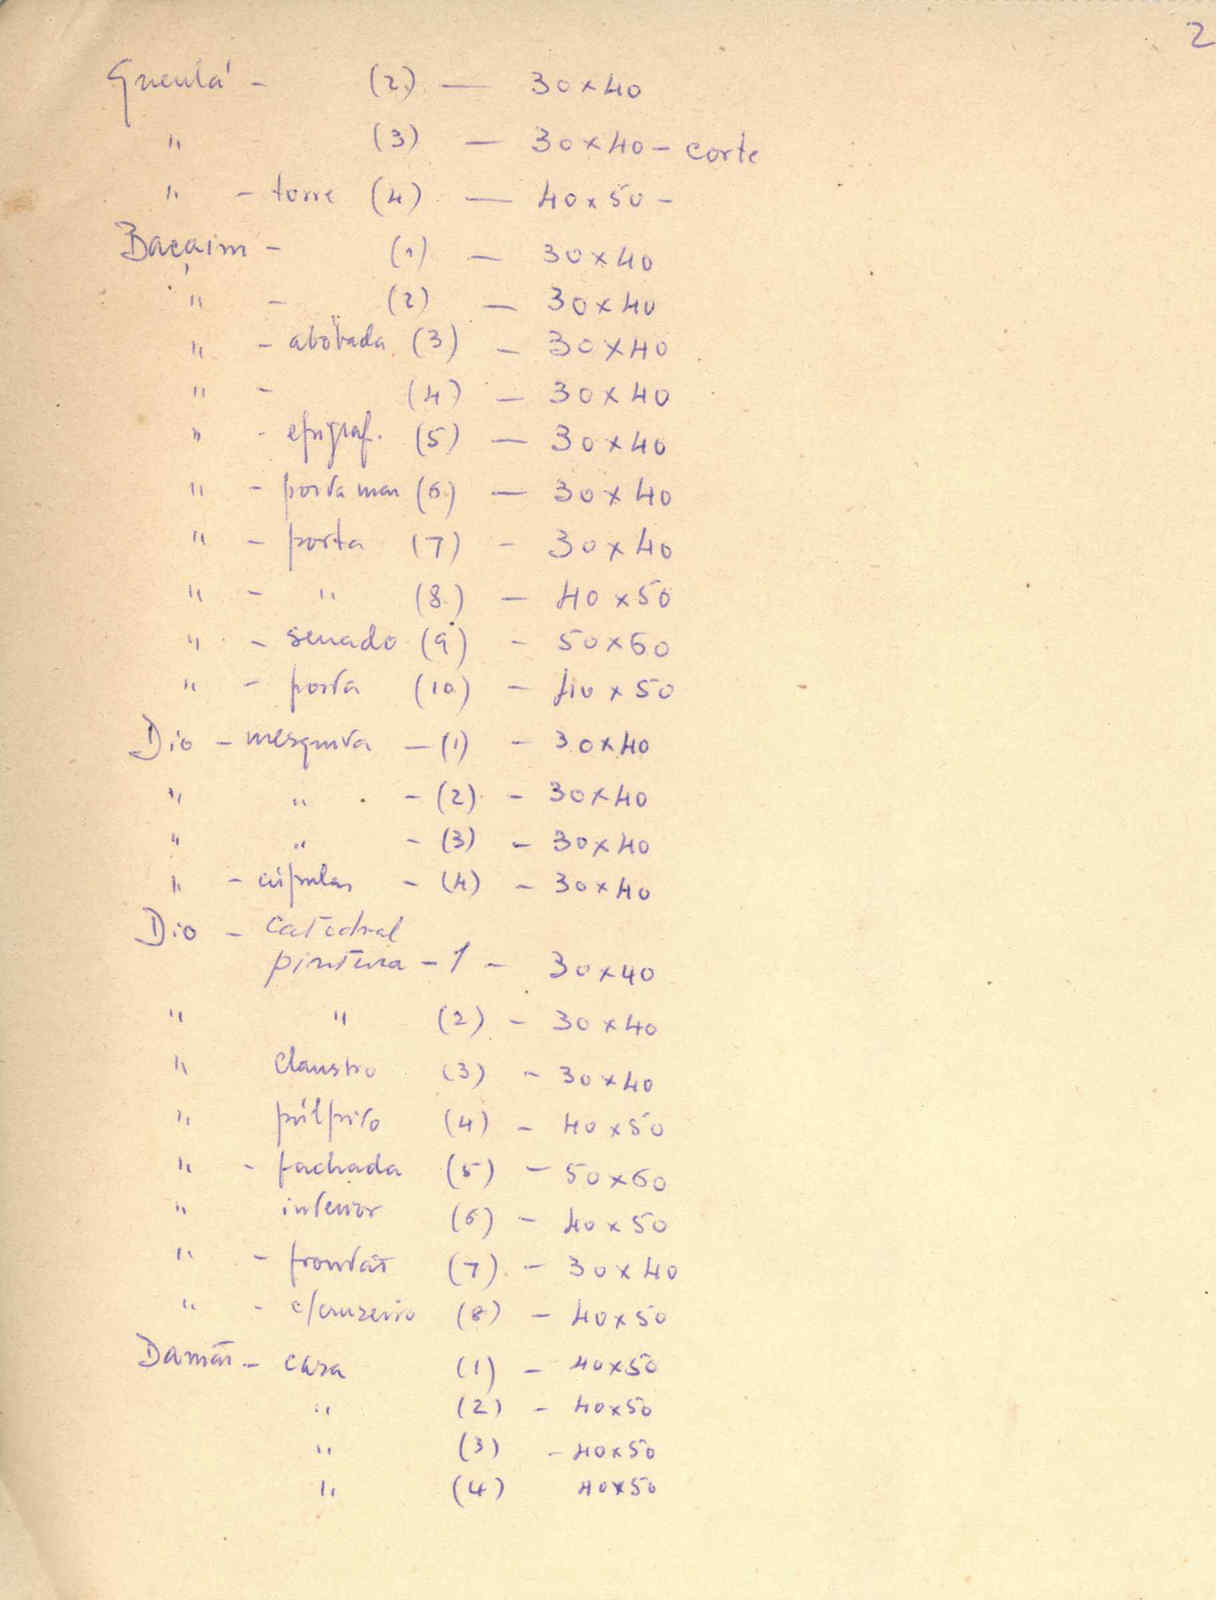 2
Gueulá - (2) — 30×40
" (3) — 30×40 - corte
" - torre (4) — 40×50 -
Baçaim - (1) — 30×40
" - (2) — 30×40
" - abóbada (3) — 30×40
" - (4) — 30×40
" - epigraf. (5) — 30×40
" - porta mar (6) — 30×40
" - porta (7) - 30×40
" - " (8) - 40×50
" - senado (9) - 50×60
" - porta (10) - 40×50
Dio - mesquita - (1) - 30×40
" " - (2) - 30×40
" " - (3) - 30×40
" - cúpulas - (4) - 30×40
Dio - catedral
pintura - 1 - 30×40
" " (2) - 30×40
" claustro (3) - 30×40
" púlpito (4) - 40×50
" - fachada (5) - 50×60
" interior (6) - 40×50
" - frontão (7) - 30×40
" - c/cruzeiro (8) - 40×50
Damão - casa (1) - 40×50
" (2) - 40×50
" (3) - 40×50
" (4) 40×50